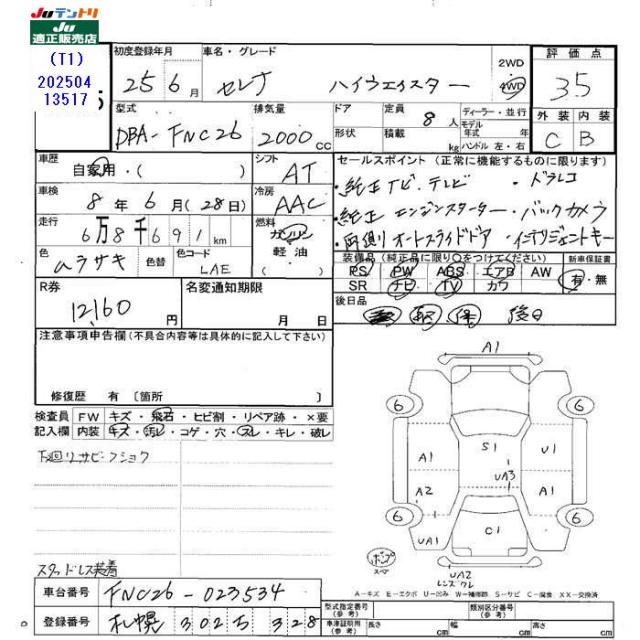 Juテントリ
Ju
適正販売店
(T1)
202504
13517
初度登録年月
25年 6月
車名・グレード
セレナ ハイウェイスター
2WD
4WD
評価点
3.5
型式
DBA-FNC26
排気量
2000 cc
ドア
形状
定員
8人
積載
kg
ディーラー・並行
モデル
年式 年式
ハンドル 左・右
外装 内装
C B
車歴
自家用・( )
シフト
AT
セールスポイント (正常に機能するものに限ります)
・純正ナビ、テレビ ・ドラレコ
・純正エンジンスターター・バックカメラ
・両側オートスライドドア・インテリジェントキー
車検
8年 6月 (28日)
冷房
AAC
走行
6万8千691 km
燃料
ガソリン
軽油
色
ムラサキ
色替
色コード
LAE
装備品 (純正品に限り○をつけてください)
PS PW ABS エアB AW
SR ナビ TV カワ
新車保証書
有・無
R券
12,160 円
名変通知期限
月 日
後日品
後日
注意事項申告欄 (不具合内容等は具体的に記入して下さい)
修復歴 有 〔箇所 〕
検査員
記入欄
FW キズ・飛石・ヒビ割・リペア跡・×要
内装 キズ・汚レ・コゲ・穴・スレ・キレ・破レ
下廻リサビ・フショク
スタッドレス装着
A1
6
6
6
6
A1
S1
U1
UA3
A2
A1
UA1
C1
UA2
レンズワレ
スペア
A－キズ E－エクボ U－凹み W－補修跡 S－サビ C－腐食 XX－交換済
車台番号
FNC26-023534
登録番号
札幌 302 5 328
型式指定番号
(参考)
類別区分番号
(参考)
車体証明用
(参考)
長さ cm
幅 cm
高さ cm